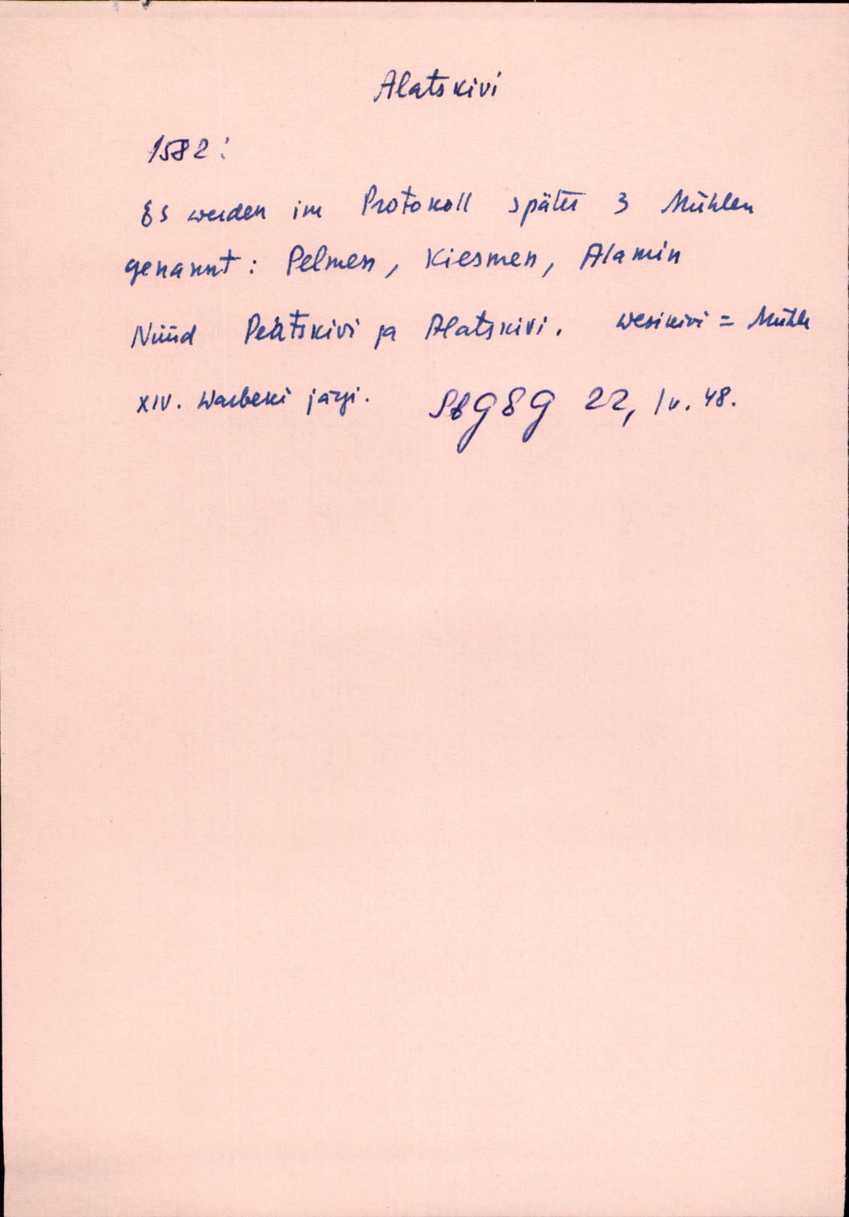 Alatskivi
1582:
Es werden im Protokoll später 3 Mühlen
genannt: Pelmen, Kiesmen, Alamin
Nüüd Peatskivi ja Alatskivi. Wesikivi = Mühle
XIV. Warbeki järgi. SbGEG 22, lk. 48.